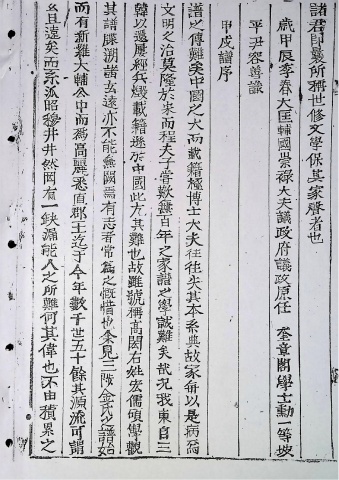 諸君即曩所稱世修文學保其家聲者也
歲甲辰季春大匡輔國崇祿大夫議政府議政原任 奎章閣學士勳一等坡
平尹容善識
甲戌譜序
譜之傳難矣中國之大而載籍極博士大夫往往失其本系典故家俱以是病焉
文明之治莫隆於宋而程夫子常歎無百年之家譜之學誠難矣哉況我東自三
韓以還屢經兵燹載籍遜於中國此尤其難也故雖號稱高閥右姓宏儒碩學觀
其譜牒溯諸玄遠亦不能無闕焉有志者常為之慨惜也余見三陟金氏之譜始
而有新羅大輔公中而為高麗悉直郡王迄于今年數千世五十餘其源流可謂
玄且遠矣而系派昭穆井井然罔有一缺漏能人之所難何其偉也不由積累之